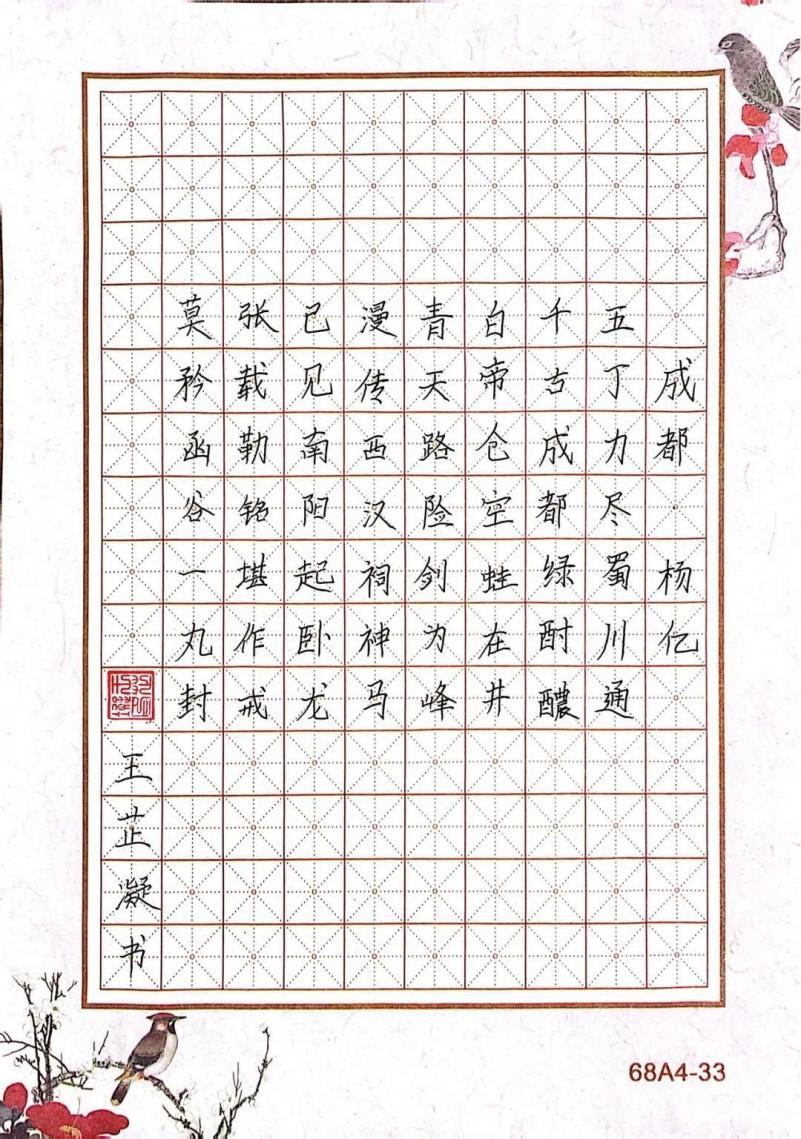 成都 杨亿
五丁力尽蜀川通
千古成都绿酎醲
白帝仓空蛙在井
青天路险剑为峰
漫传西汉祠神马
已见南阳起卧龙
张载勒铭堪作戒
莫矜函谷一丸封
王芷凝书
68A4-33